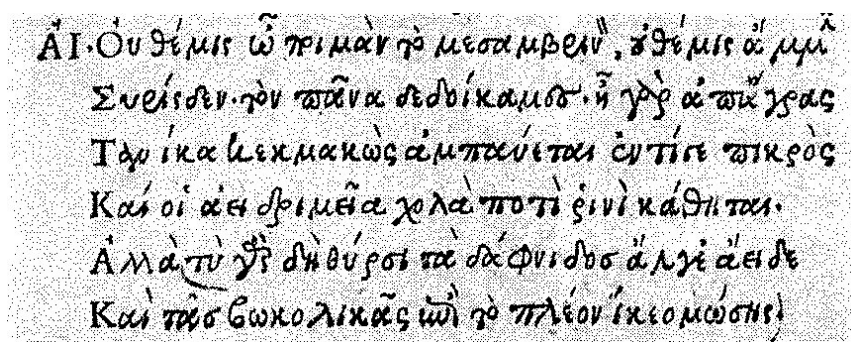 ΑΙ·Οὐ θέμις ὦ ποιμὰν τὸ μεσαμβρινὸν, οὐ θέμις ἄμμιν
Συρίσδεν·τὸν πᾶνα δεδοίκαμες·ἦ γὰρ ἀπ' ἄγρας
Τανίκα κεκμακὼς ἀμπαύεται ἐντί γε πικρὸς
Καί οἱ ἀεὶ δριμεῖα χολὰ ποτὶ ῥινὶ κάθηται.
Ἀλλὰ τὺ γὰρ δὴ θύρσι τὰ δάφνιδος ἄλγε ἄειδε
Καὶ τᾶς βωκολικᾶς ἐπὶ τὸ πλέον ἵκεο μώσης